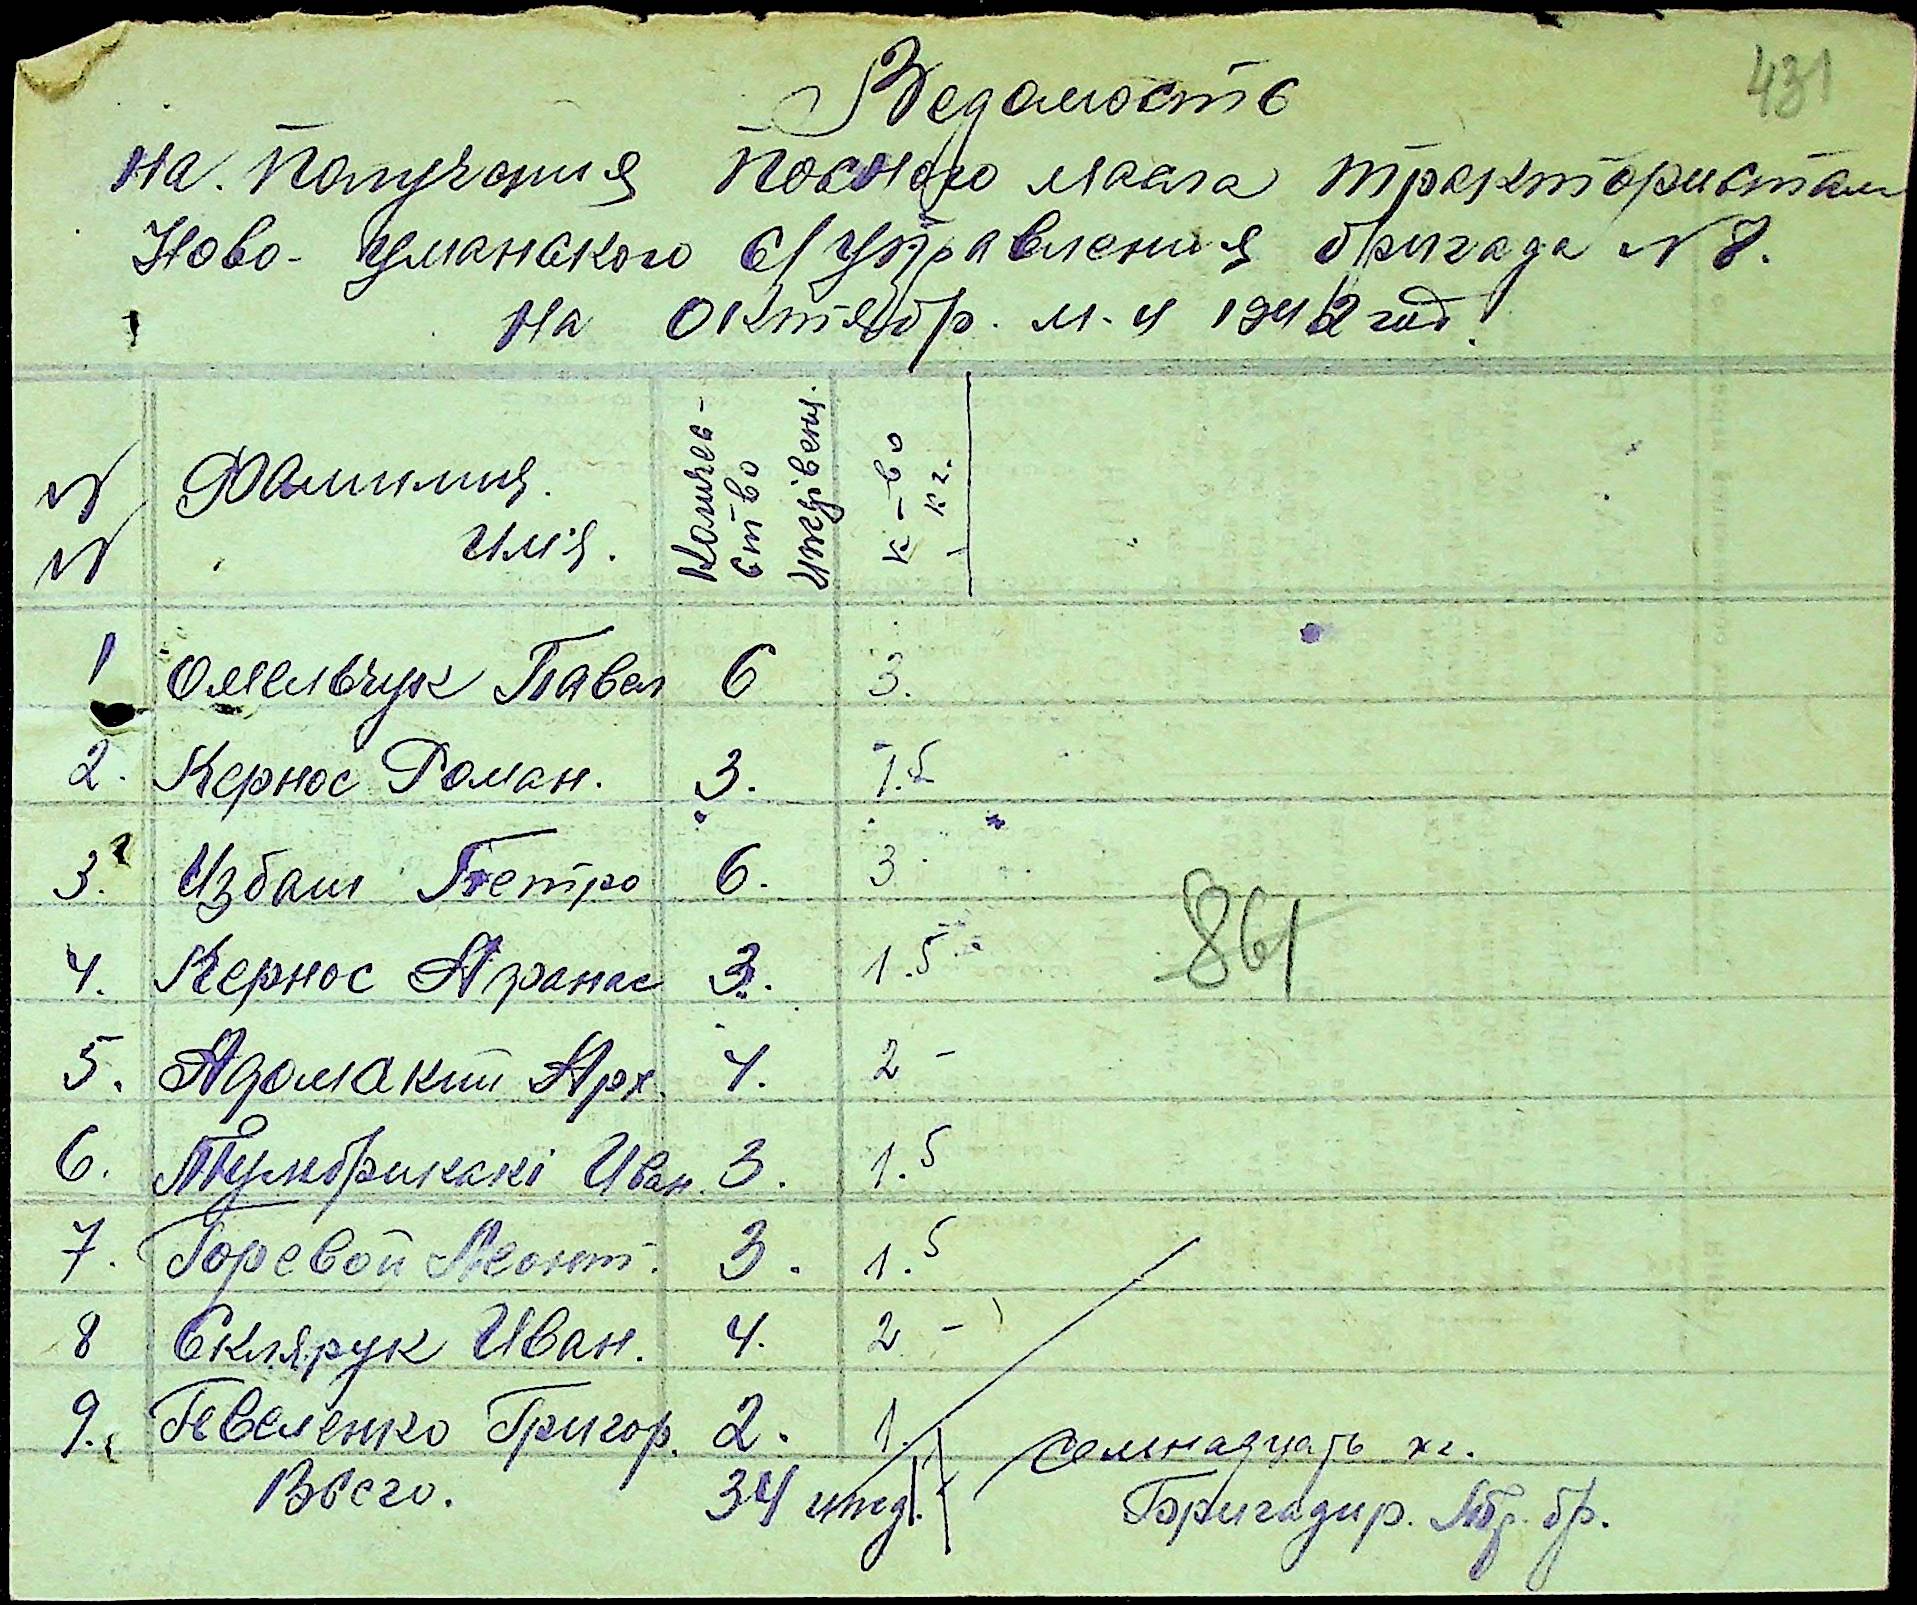 431
Ведомость
на. Получения Посного масла трактористам
Ново-Уманского с/управления бригада N 8.
на октябр. м-ц 1942 год.
N N Фамилия. имя. Количес-ство иждивени. к-во кг.
1 Омельчук Павел 6 3.
2. Кернос Роман. 3. 1.5
3. Избаш Петро 6. 3
4. Кернос Афанас 3. 1.5
861
5. Адомакин Арх. 4. 2 -
6. Иван. 3. 1.5
7. Горевой Леонт. 3. 1.5
8 Склярук Иван. 4. 2 -
9. Гевеленко Григор. 2. 1.
Всего. 34 ижд. семнадцать кг.
Бригадир. Тр. бр.